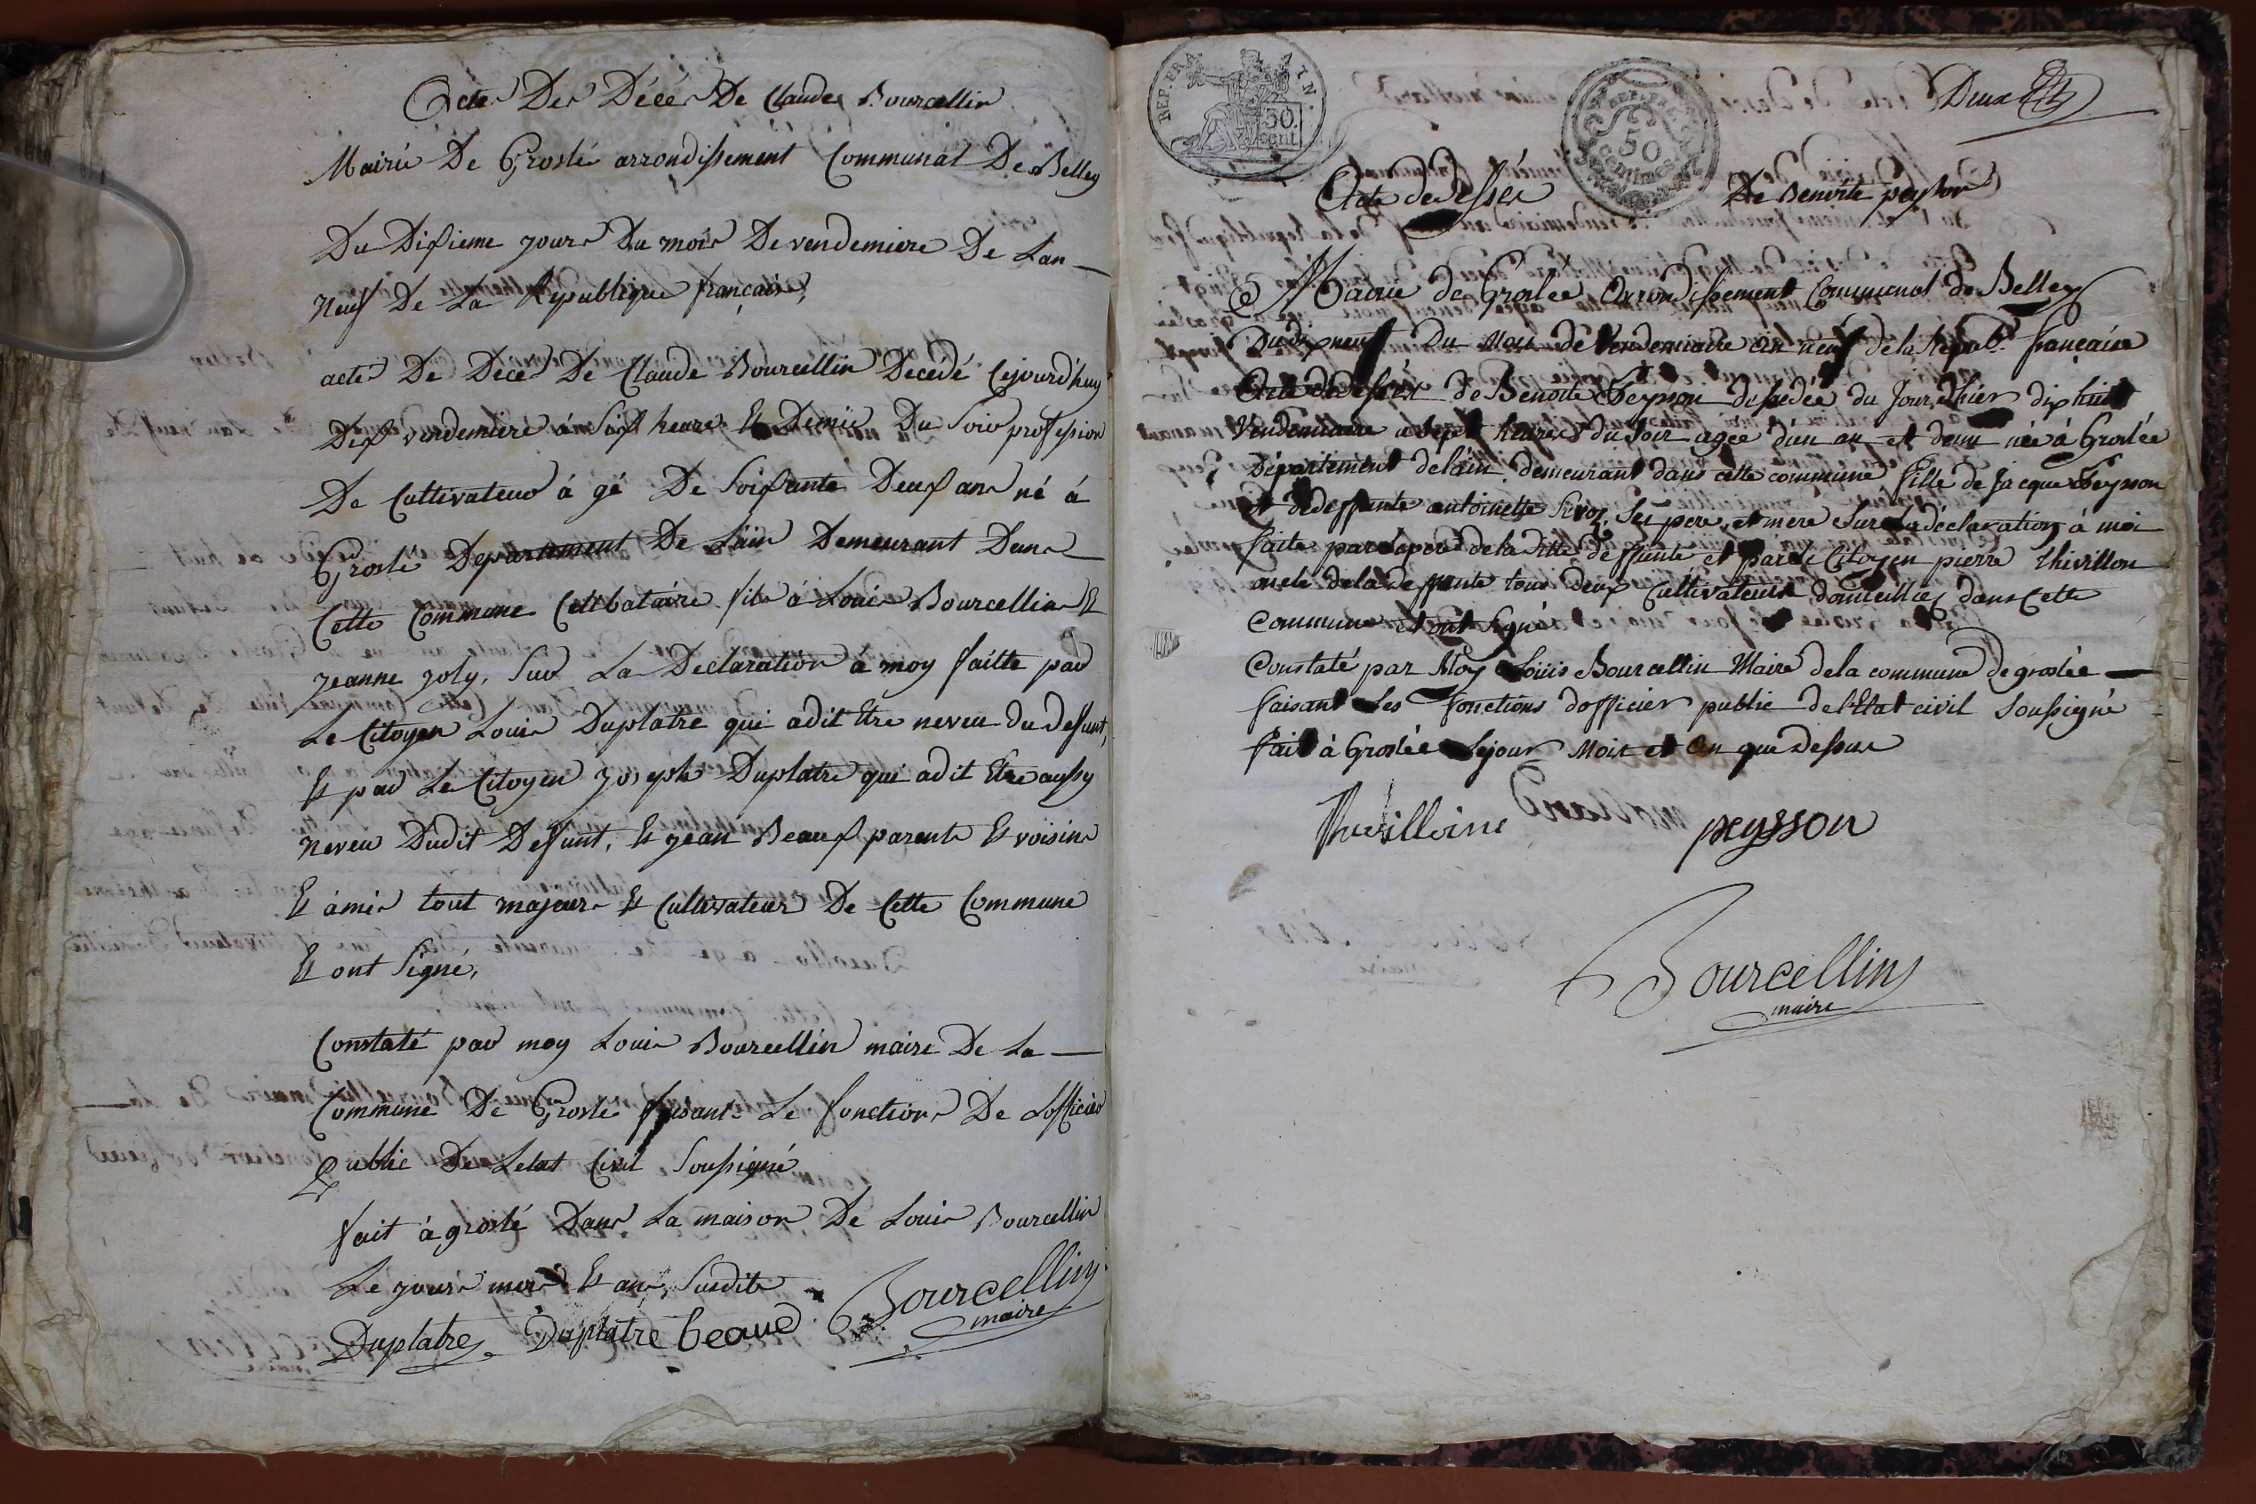 Acte De Décé De Claude Bourcellin
Mairié De Groslé arrondissement Communal De Belley
Du Dixieme jour Du mois De vendemiere De Lan
Neuf De La Republique française,
acte De Decé De Claude Bourcellin Decédé Cejourd'huy
Dix vendemiere á Six heure Et Demie Du Soir profession
De Cultivateur á gé De Soixante Deux ans né á
Groslé Departement De Lain Demeurant Dans
Cette Commune Celibataire fils á Louis Bourcellin Et
jeanne joly, Sur La Declaration à moy faitte par
Le Citoyen Louis Duplatre qui adit Etre neveu du defunt,
Et par Le Citoyen joseph Duplatre qui adit Etre aussy
Neveu Dudit Defunt, Et jean Beaux parents Et voisins
Et ámis tout majeurs Et Cultivateur De Cette Commune
Et ont Signé,
Constaté par moy Louis Bourcellin maire De La
Commune De Groslé faisant Le fonctions De Lofficier
Public De Letat Civil Soussigné
fait à groslé Dans La maison De Louis Bourcellin
Le jours mois Et ans Susdits
Duplatre Duplatre beaud Bourcellin
maire
REP. FRA
50 cent
50 centimes
Deux
Acte de desses De Benoite peysson
Mairie de Groslée Arrondissement Communal de Belley
Du dix neuf Du Mois de Vendemiaire an neuf de la Republ. française
Acte de desses de Benoite Peysson desédée du Jour d'hier dix huit
Vendemiaire a Sept heures du Soir agée d'un an et demi née á Groslée
Département de lain demeurant dans cette commune fille de Jacque Peysson
et dedeffunte antoinette Ses pere et mere Sur la déclaration à moi
faite par lepere de la ditte deffunte et par le Citoyen pierre thivillon
oncle dela deffunte tous deux Cultivateurs domicilies dans Cette
Commune et ont Signé
Constaté par Moy Loüis Bourcellin Maire dela commune de groslée
faisant Les fonctions dofficier public de l'Etat civil Soussigné
fait à Groslée Lejour Mois et An que Dessus
peysson
Bourcellin
maire